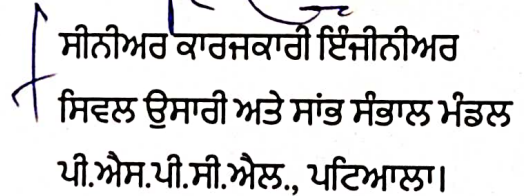 ਸੀਨੀਅਰ ਕਾਰਜਕਾਰੀ ਇੰਜੀਨੀਅਰ
ਸਿਵਲ ਉਸਾਰੀ ਅਤੇ ਸਾਂਭ ਸੰਭਾਲ ਮੰਡਲ
ਪੀ.ਐਸ.ਪੀ.ਸੀ.ਐਲ., ਪਟਿਆਲਾ।